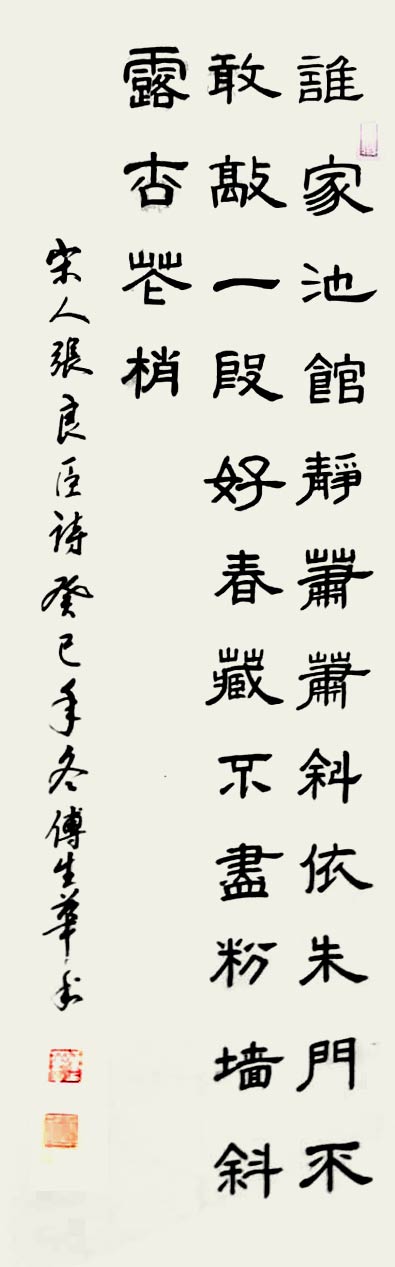 誰家池館靜蕭蕭斜依朱門不
敢敲一段好春藏不盡粉墙斜
露杏花梢
宋人張良臣詩癸巳年冬傅生華書